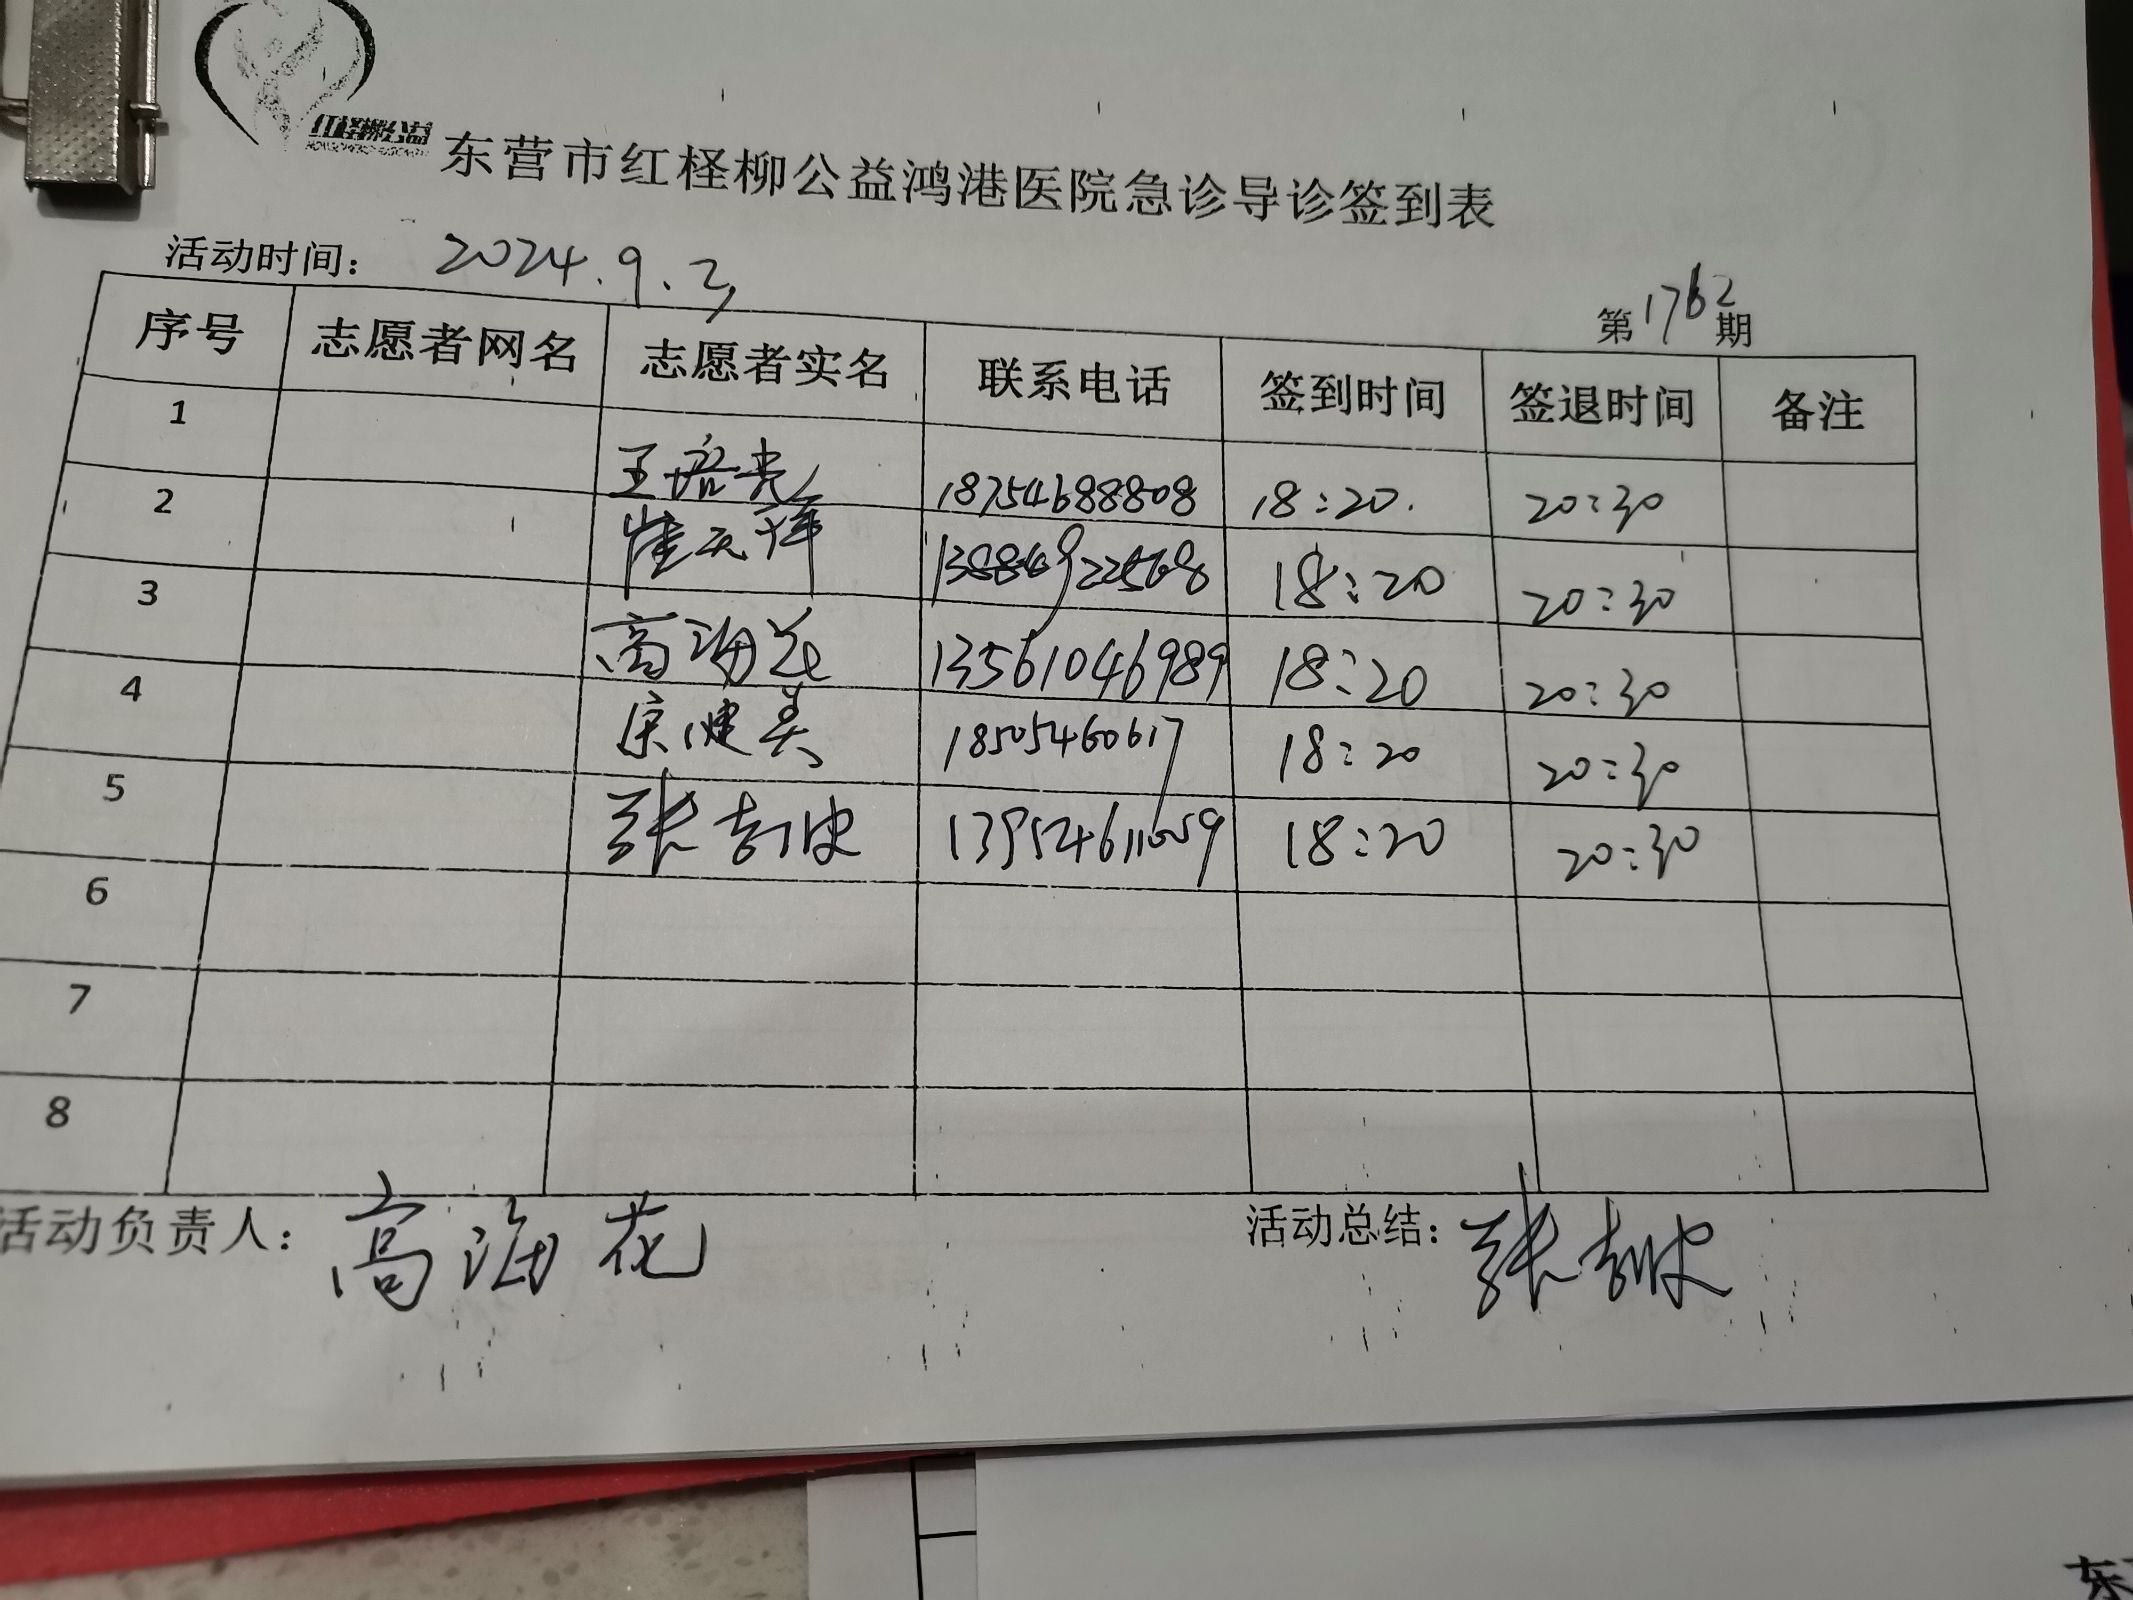 红柽柳公益
东营市红柽柳公益鸿港医院急诊导诊签到表
活动时间: 2024.9.2,
第1762期
序号 志愿者网名 志愿者实名 联系电话 签到时间 签退时间 备注
1 王培光 18754688808 18:20. 20:30
2 崔天祥 18:20 20:30
3 高海花 13561046989 18:20 20:30
4 宗健美 18505460617 18:20 20:30
5 张 18:20 20:30
6
7
8
活动负责人: 高海花 活动总结: 张
东